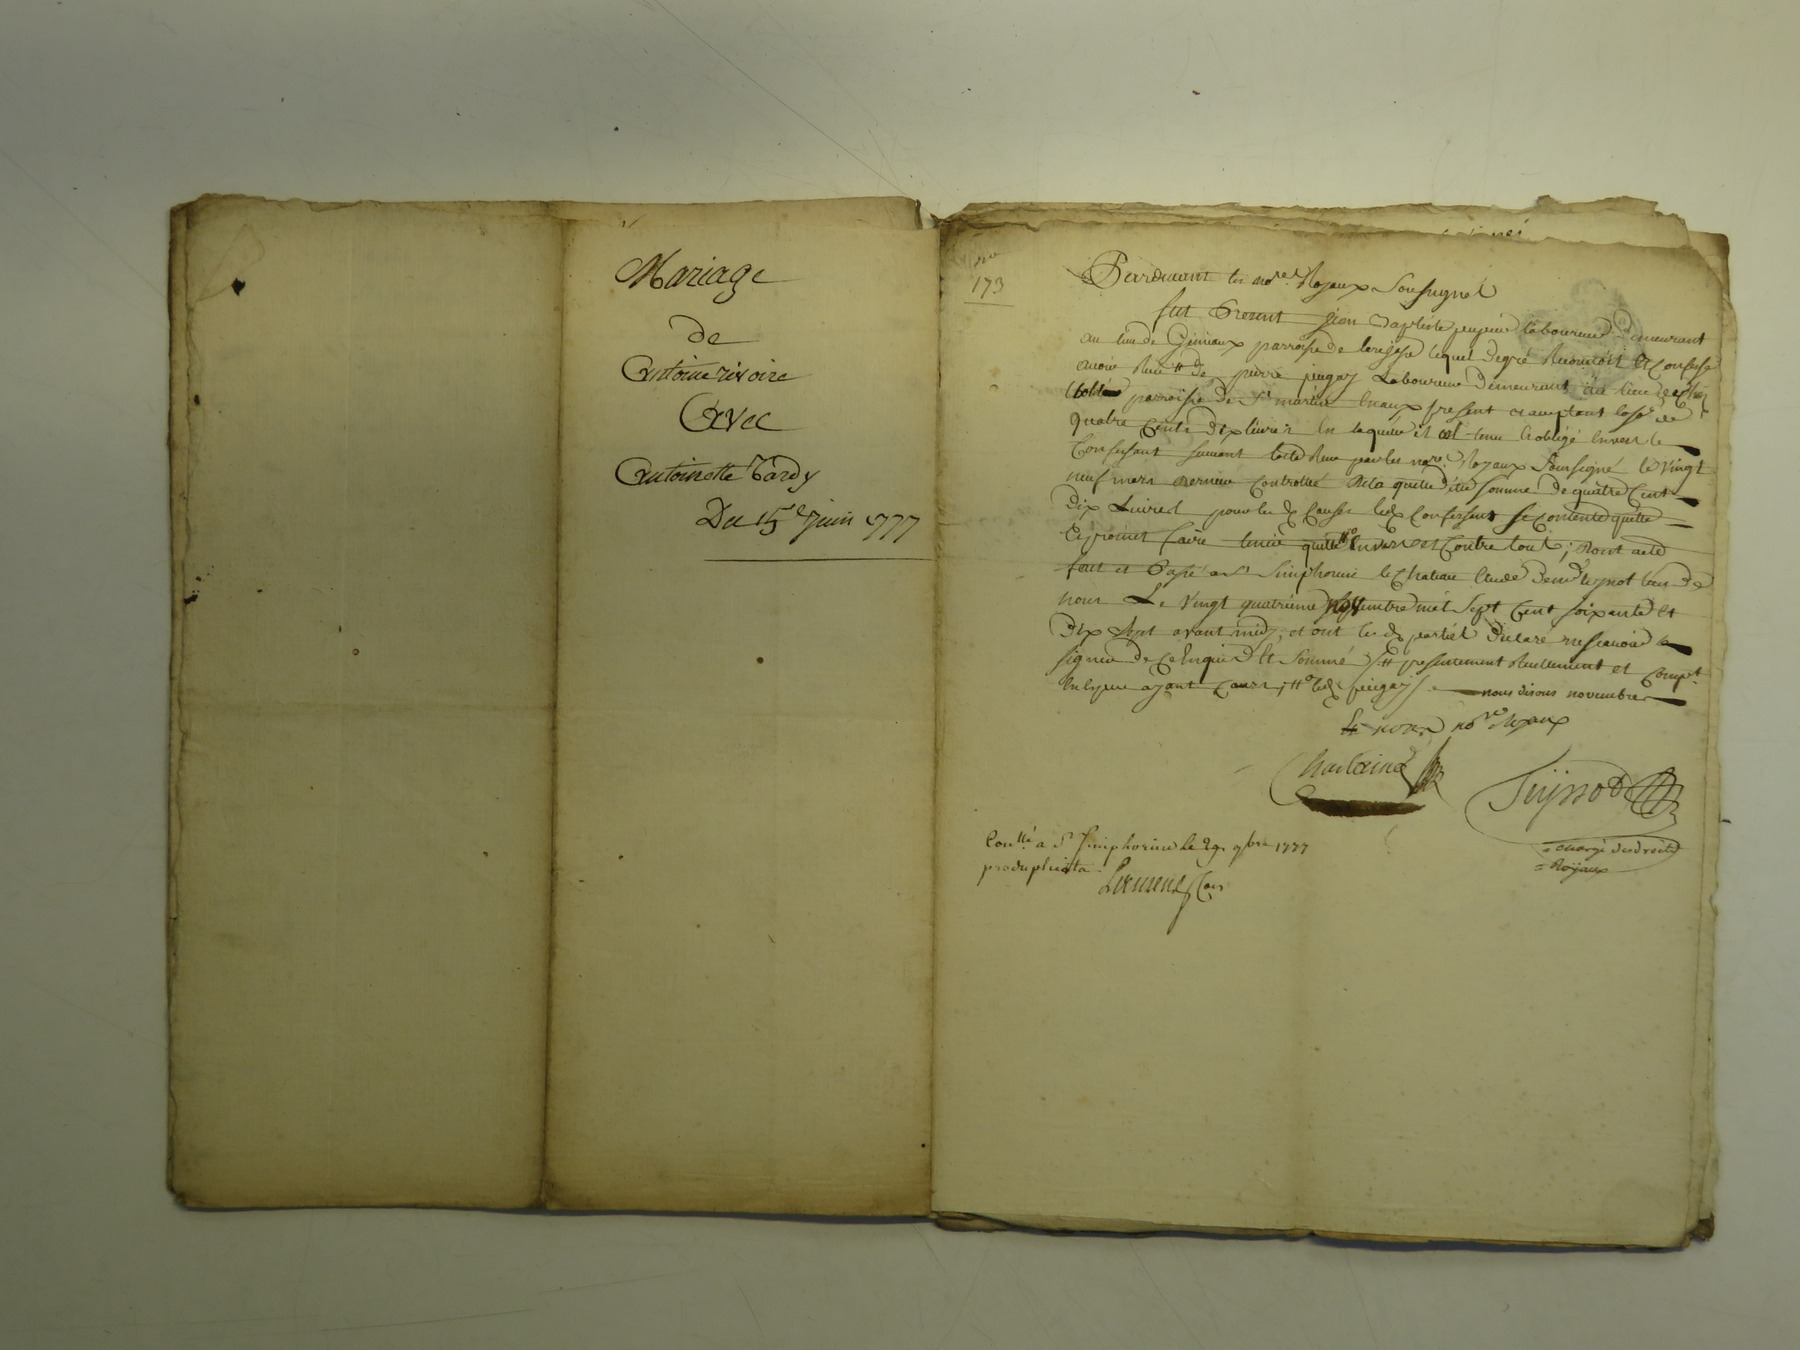 Mariage
de
Antoine rivoire
Avec
Antoinette Tardy
Du 15e Juin 1777
no
173
Pardevant les nores Royaux Soussignes
fut Present jean Baptiste laboureur demeurant
au lieu de parroisse de lequel degré Reconnoit et Confesse
avoir Reçu # de pierre pingay Laboureur demeurant au lieu de
parroisse de St martin présent et acceptant la so͠e de
quatre Cents dix livres en laquelle il est tenu et obligé envers le
Confessant suivant Reçu par les nores Royaux soussigné le vingt
neuf mars dernier Controllé De la quelle ditte somme de quatre Cent
Dix Livres pour les d Causes led Confessant se contente quitte
Et promet faire tenir quitte envers et Contre tout; Dont acte
fait et Passé a St Simphorien le Chateau Etude de nous
nous Le vingt quatrieme novembre mil Sept Cent soixante et
Dix Sept avant midy, et ont les d parties Declaré ne scavoir
signer de Ce Enquis Et Sommé # presentement Reellement et Compt
En especes ayant Cours, # led pingay nous disons novembre
nores Royaux
Chartaine
Teyssot
= chargé des droits
= Royaux
Conllé a St Simphorien le 29 9bre 1777
pro duplicata